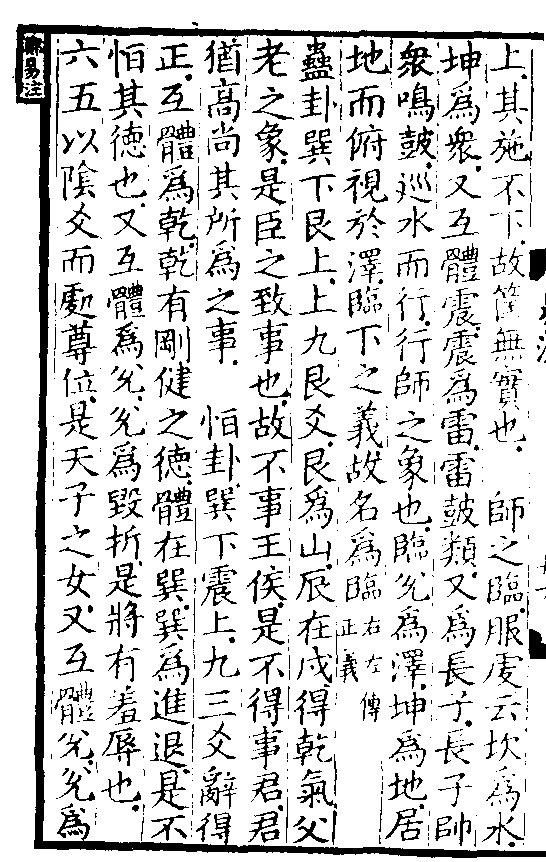 上其施不下故筐無實也　師之臨服虔云坎爲水
坤爲衆又互體震震爲雷雷皷類又爲長子長子帥
衆鳴皷巡水而行行師之象也臨兊爲澤坤爲地居
地而俯視於澤臨下之義故名爲臨右左傳正義
蠱卦巽下艮上上九艮爻艮爲山辰在戌得乾氣父
老之象是臣之致事也故不事王侯是不得事君君
猶高尚其所爲之事　恒卦巽下震上九三爻辭得
正互體爲乾乾有剛健之德體在巽巽爲進退是不
恒其德也又互體爲兊兊爲毀折是將有羞辱也
六五以陰爻而處尊位是天子之女又互體兊兊爲
易注